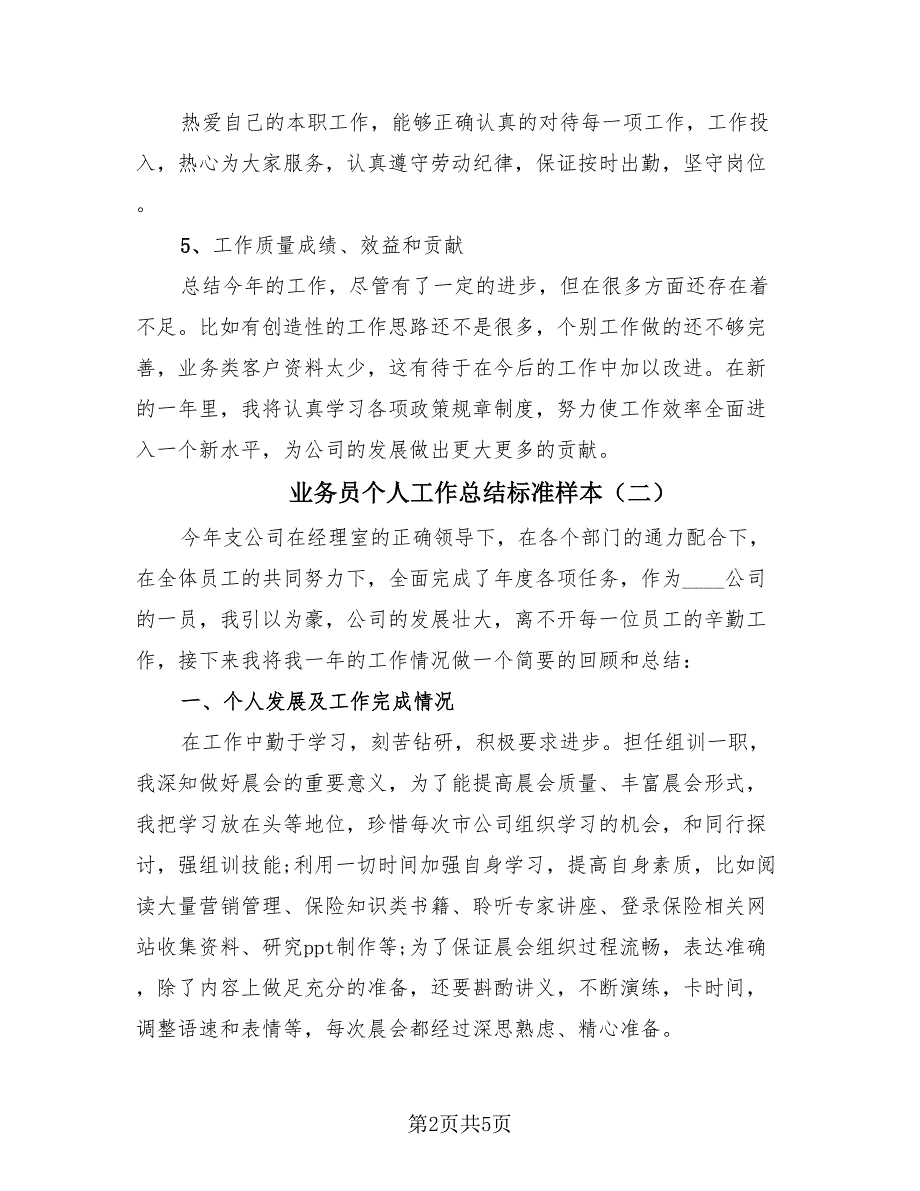 热爱自己的本职工作，能够正确认真的对待每一项工作，工作投
入，热心为大家服务，认真遵守劳动纪律，保证按时出勤，坚守岗位
。
5、工作质量成绩、效益和贡献
总结今年的工作，尽管有了一定的进步，但在很多方面还存在着
不足。比如有创造性的工作思路还不是很多，个别工作做的还不够完
善，业务类客户资料太少，这有待于在今后的工作中加以改进。在新
的一年里，我将认真学习各项政策规章制度，努力使工作效率全面进
入一个新水平，为公司的发展做出更大更多的贡献。
业务员个人工作总结标准样本（二）
今年支公司在经理室的正确领导下，在各个部门的通力配合下，
在全体员工的共同努力下，全面完成了年度各项任务，作为____公司
的一员，我引以为豪，公司的发展壮大，离不开每一位员工的辛勤工
作，接下来我将我一年的工作情况做一个简要的回顾和总结：
一、个人发展及工作完成情况
在工作中勤于学习，刻苦钻研，积极要求进步。担任组训一职，
我深知做好晨会的重要意义，为了能提高晨会质量、丰富晨会形式，
我把学习放在头等地位，珍惜每次市公司组织学习的机会，和同行探
讨，强组训技能;利用一切时间加强自身学习，提高自身素质，比如阅
读大量营销管理、保险知识类书籍、聆听专家讲座、登录保险相关网
站收集资料、研究ppt制作等;为了保证晨会组织过程流畅，表达准确
，除了内容上做足充分的准备，还要斟酌讲义，不断演练，卡时间，
调整语速和表情等，每次晨会都经过深思熟虑、精心准备。
第2页共5页